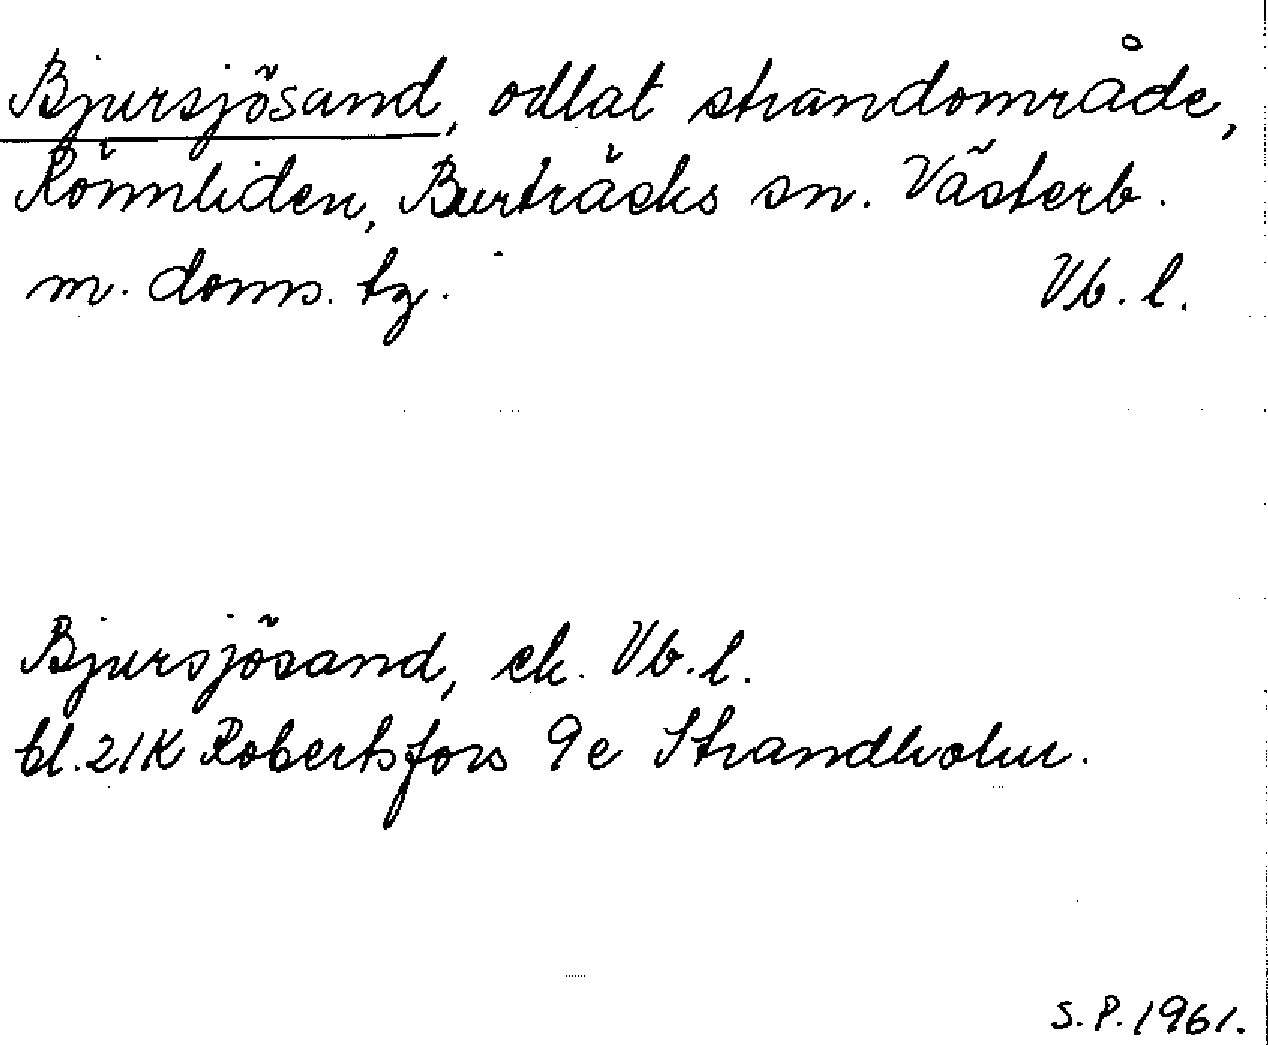 Bjursjösand, odlat strandområde,
Rönnliden, Burträcks sn. Västerb.
m. doms. tg. Vb. l.
Bjursjösand, ek. Vb. l.
bl. 21K Robertsfors 9e Strandholm.
S.P. 1961.